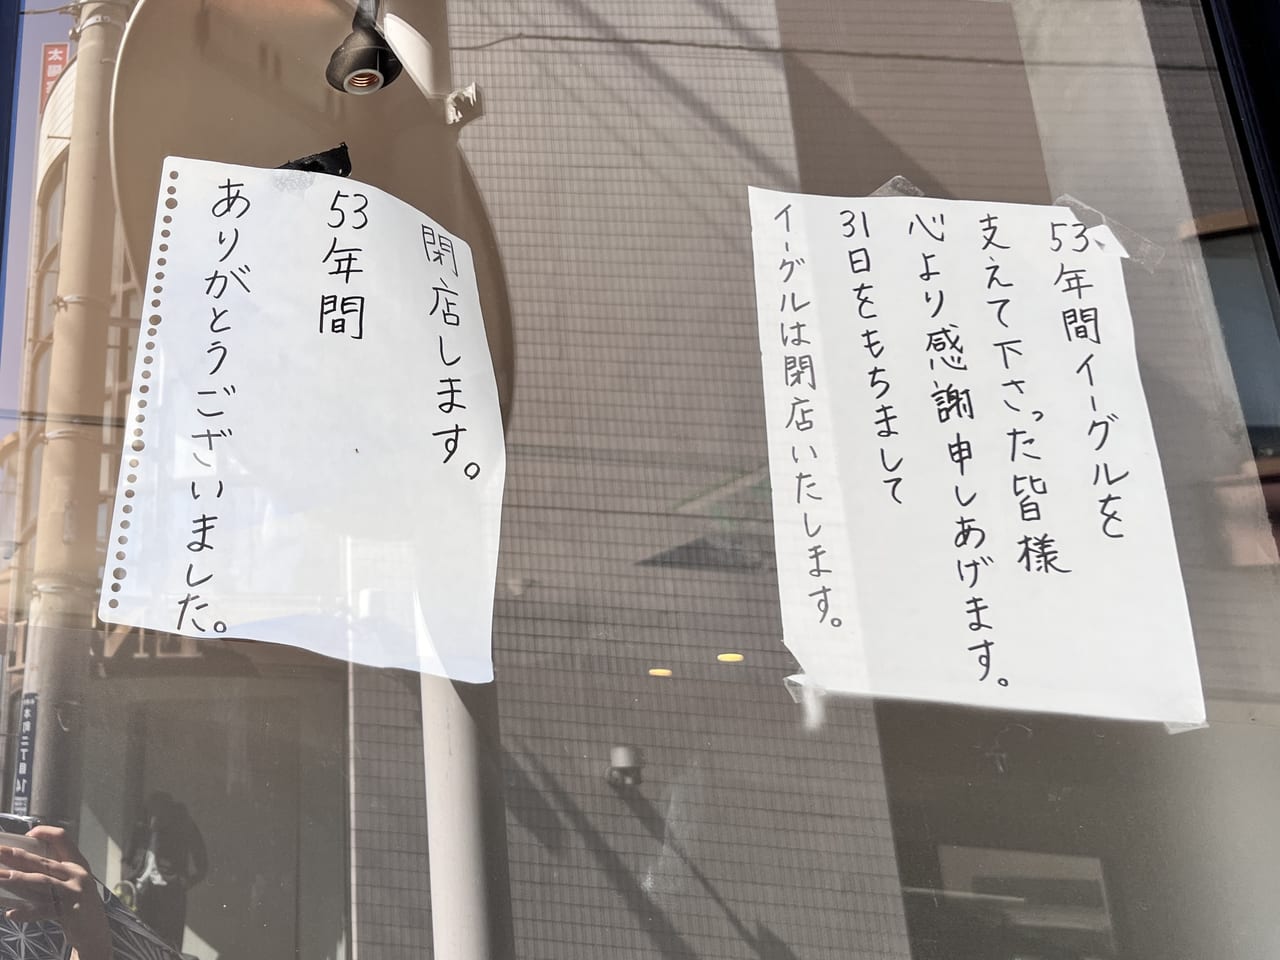 53年間イーグルを
支えて下さった皆様
心より感謝申しあげます。
31日をもちまして
イーグルは閉店いたします。
閉店します。
53年間
ありがとうございました。
本町二丁目
14